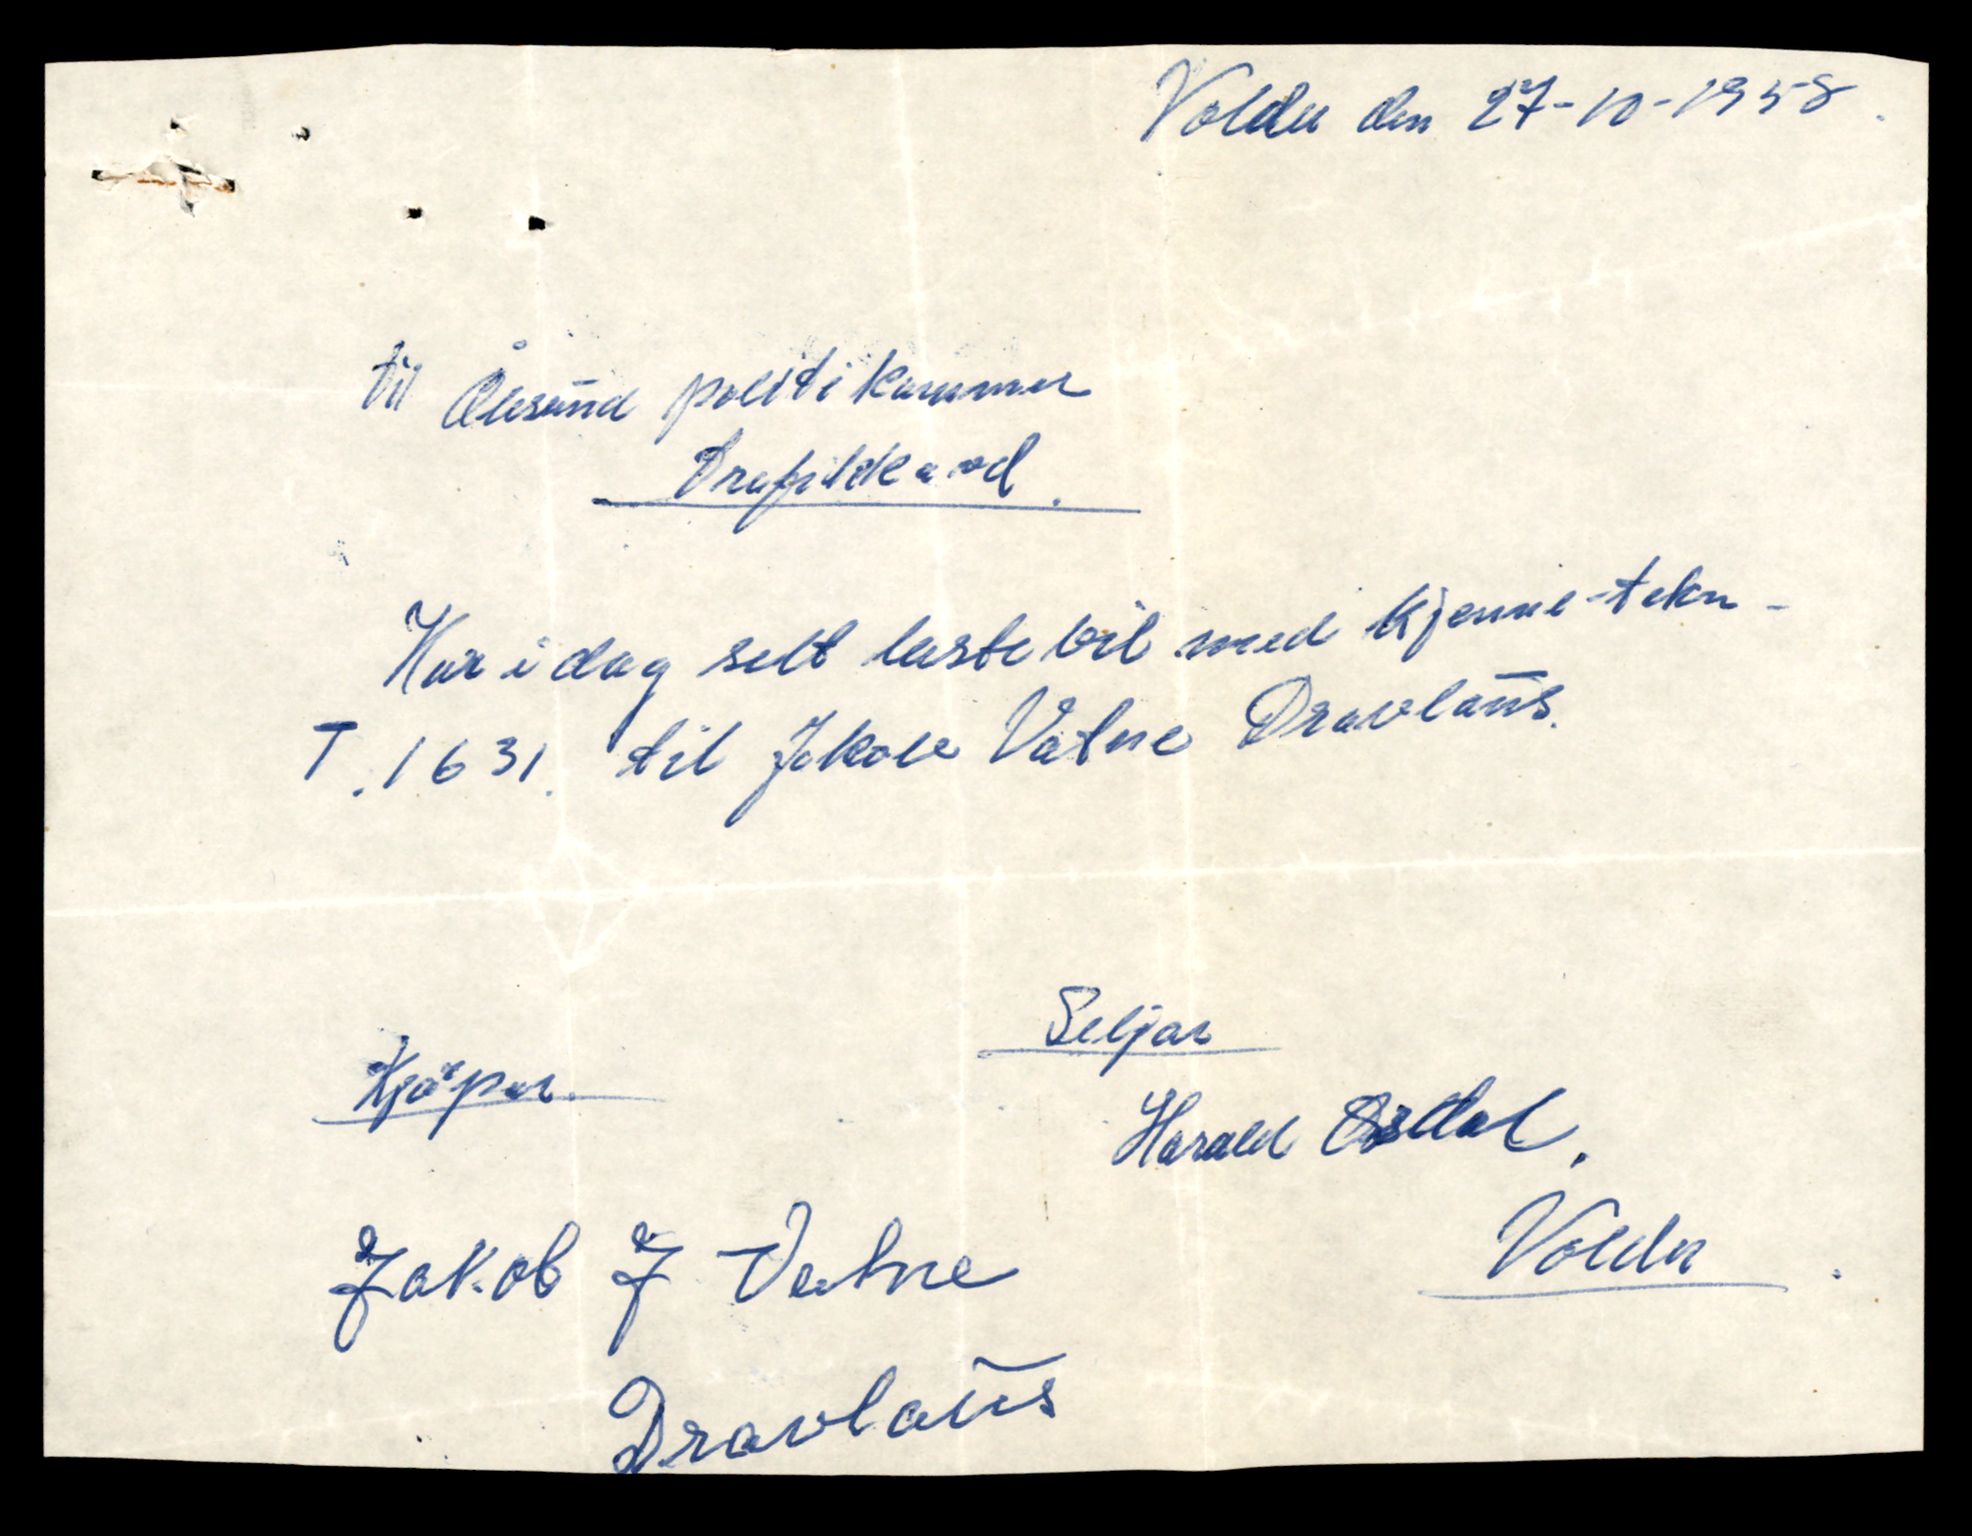 Volda den 27-10-1958.
til Ålesund politikammer
Trafikkavd.
Har i dag selt lastebil med kjenne-tekn-
T.1631. til Jakob Vatne Dravlaus.
Seljar
Kjøpar.
Harald
Volda.
Jakob J Vatne
Dravlaus